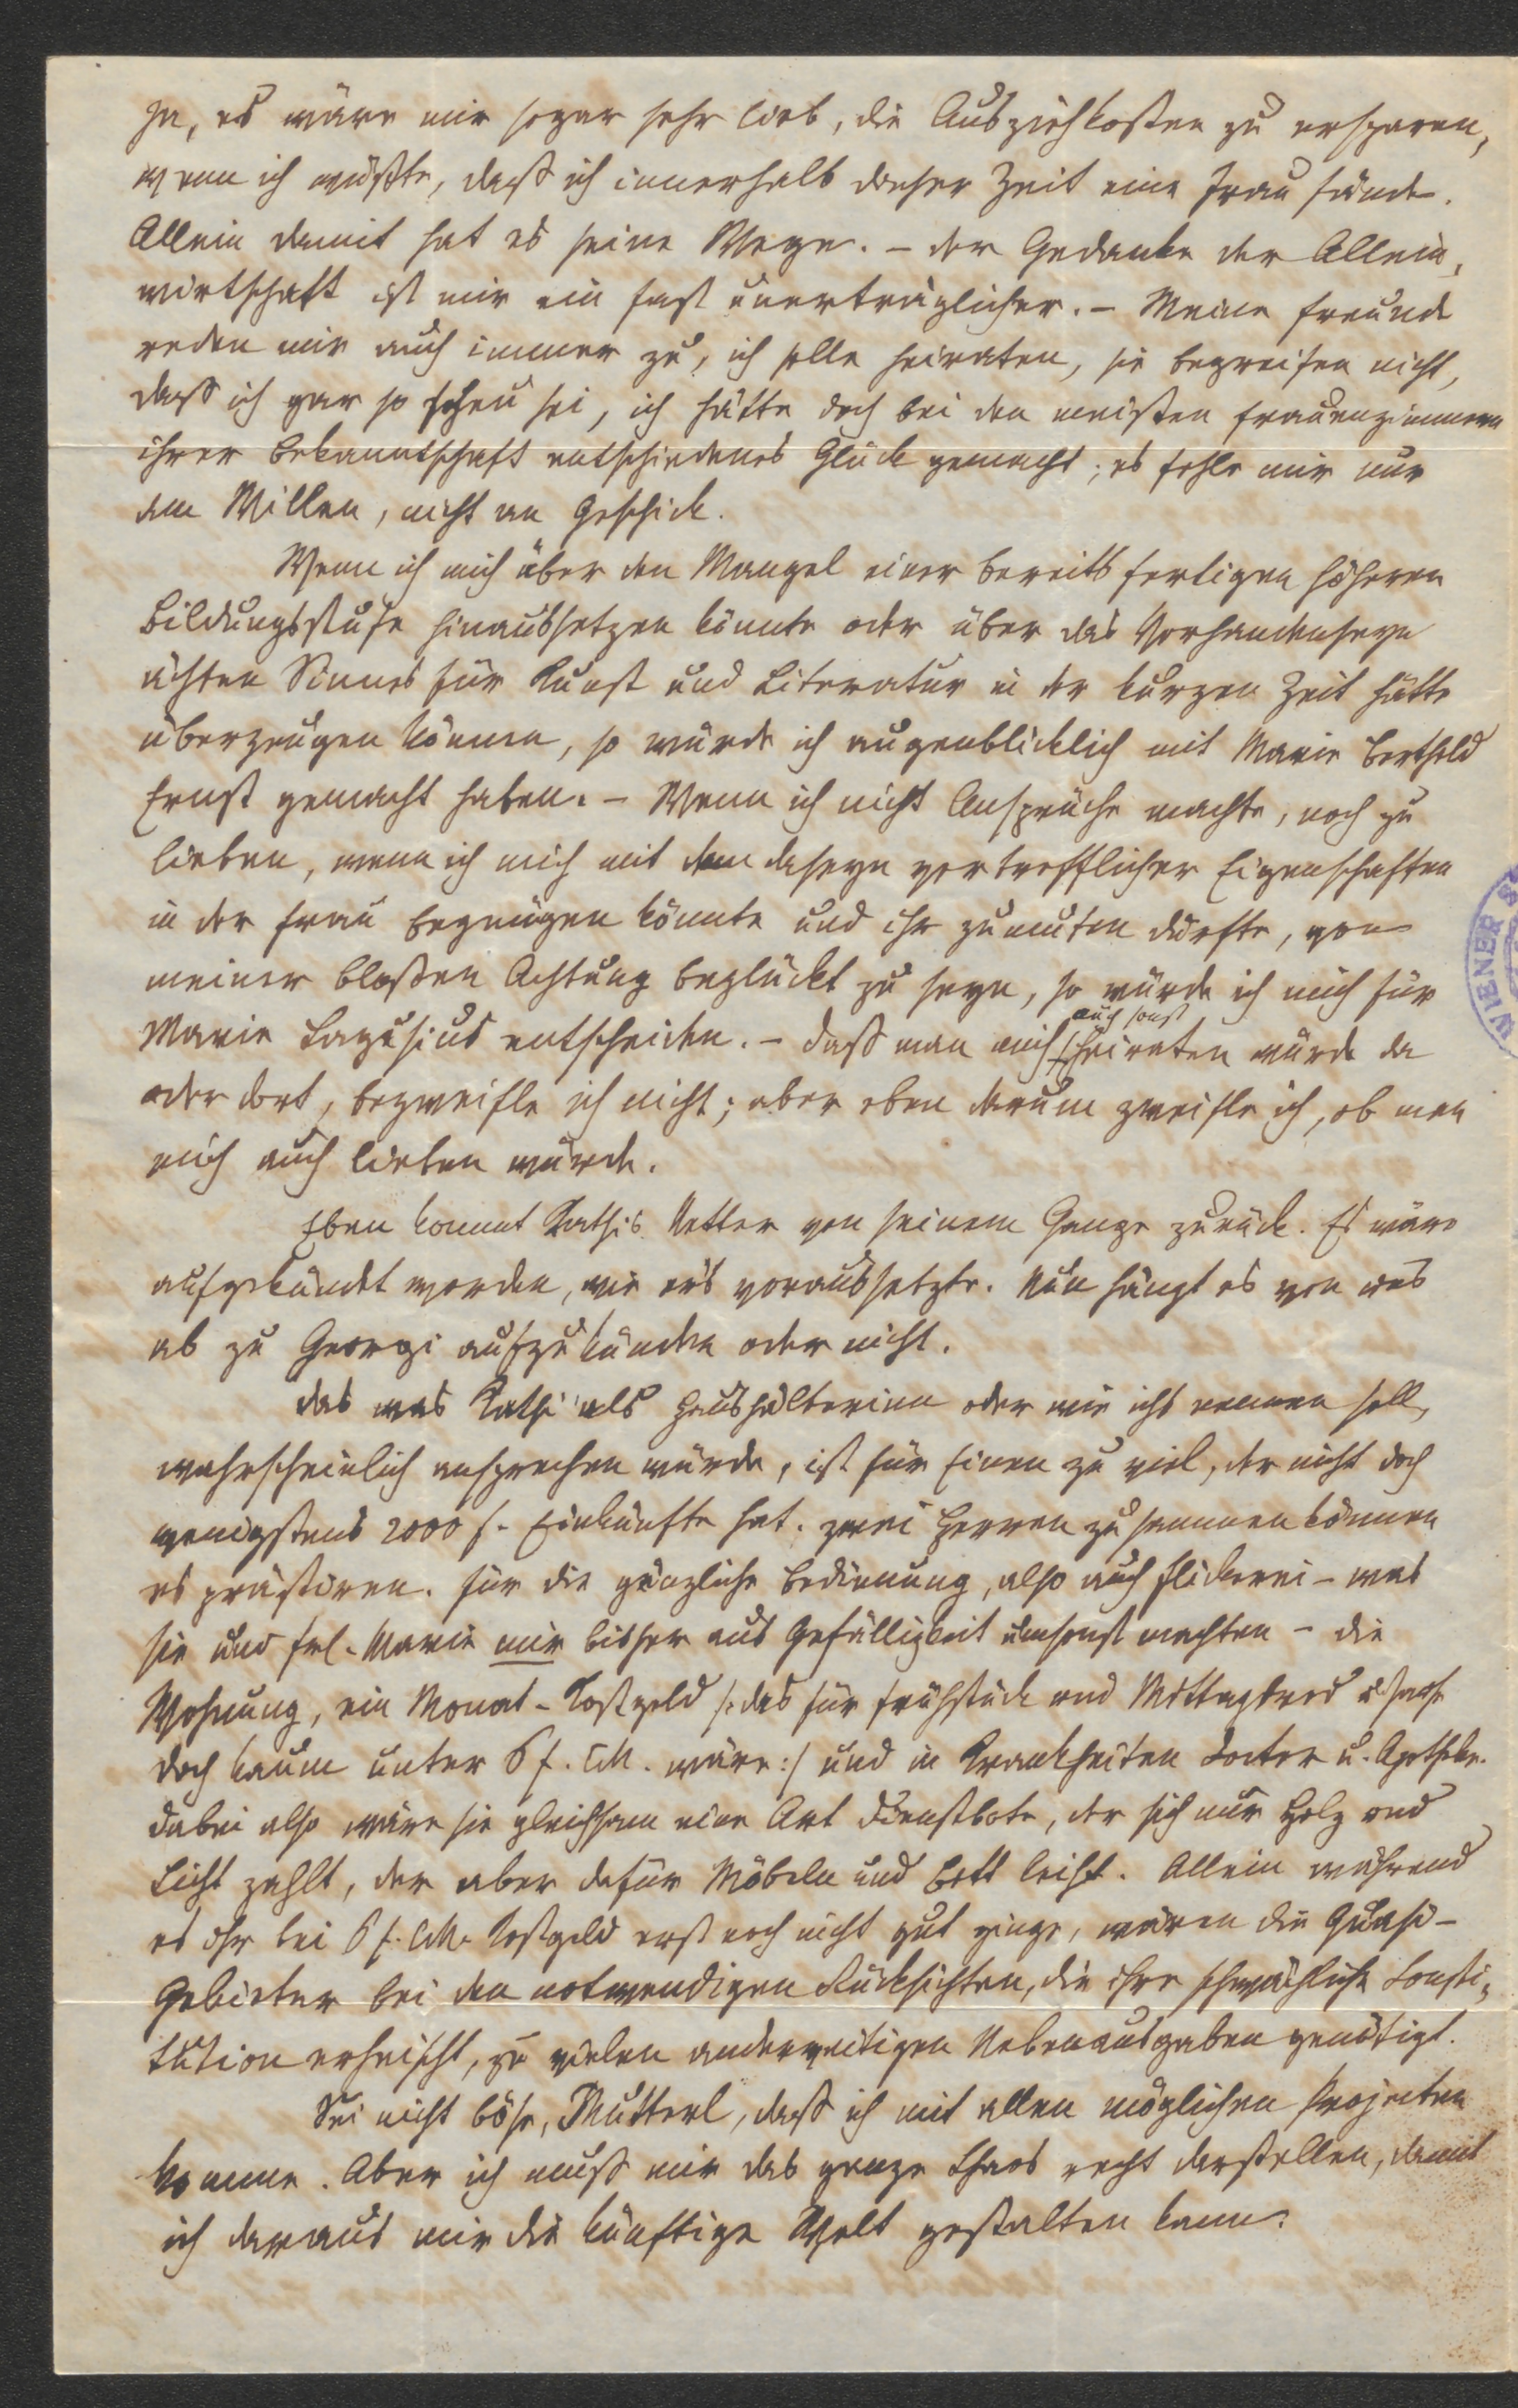 ja, es wäre mir sogar sehr lieb, die Ausziehkosten zu ersparen,
wenn ich wüßte, daß ich innerhalb dieser Zeit eine Frau fände.
Allein damit hat es seine Wege. – der Gedanke der Allein,
wirtschaft ist mir ein fast unerträglicher. – Meine Freunde
reden mir auch immer zu, ich solle heiraten, sie begreifen nicht,
daß ich gar so scheu sei, ich hätte doch bei den meisten Frauenzimmern
ihrer Bekanntschaft entschiedenes Glück gemacht; es fehle mir nur
am Willen, nicht an Geschick.
Wenn ich mich über den Mangel einer bereits fertigen höheren
Bildungsstufe hinaussetzen könnte oder über das Vorhandenseyn
ächten Sinnes für Kunst und Literatur in der kurzen Zeit hätte
überzeugen können, so würde ich augenblicklich mit Marie Berthold
Ernst gemacht haben. – Wenn ich nicht Ansprüche machte, noch zu
lieben, wenn ich mich mit dem Daseyn vortrefflicher Eigenschaften
in der Frau begnügen könnte und ihr zumuten dürfte, von
meiner bloßen Achtung beglückt zu seyn, so würde ich mich für
auch sonst
Marie entscheiden. – daß man mich heiraten würde da
oder dort, bezweifle ich nicht; aber eben darum zweifle ich, ob man
mich auch lieben würde.
Eben kommt Kathis Vetter von seinem Gange zurück. Es wäre
aufgekündet worden, wie er's voraussetzte. Nun hängt es von uns
ab zu Georgi aufzukünden oder nicht.
das was Kathi als Haushälterinn oder wie ichs nennen soll,
wahrscheinlich ansprechen würde, ist für Einen zu viel, der nicht doch
wenigstens 2000 f. Einkünfte hat. zwei Herren zusammen können
es prästiren. für die gänzliche Bedienung, also auch Flickerei – was
sie und Frl. Marie mir bisher aus Gefälligkeit umsonst machten – die
Wohnung, ein Monat-Kostgeld /: das für Frühstück und Mittagbrod
doch kaum unter 6 f. CM. wäre :/ und in Krankheiten Doctor u. Apotheke.
dabei also wäre sie gleichsam eine Art Dienstbote, der sich nur Holz und
Licht zahlt, der aber dafür Möbeln und Bett leiht. Allein während
es ihr bei 6 f. CM. Kostgeld erst noch nicht gut ginge, wären die Quasi-
Gebieter bei den notwendigen Rücksichten, die ihre schwächliche Consti,
tution erheischt, zu vielen anderweitigen Nebenausgaben genötigt.
Sei nicht böse, Mutterl, daß ich mit allen möglichen Projecten
komme. Aber ich muß mir das ganze Chaos recht darstellen, damit
ich daraus mir die künftige Welt gestalten kann.
WIENER